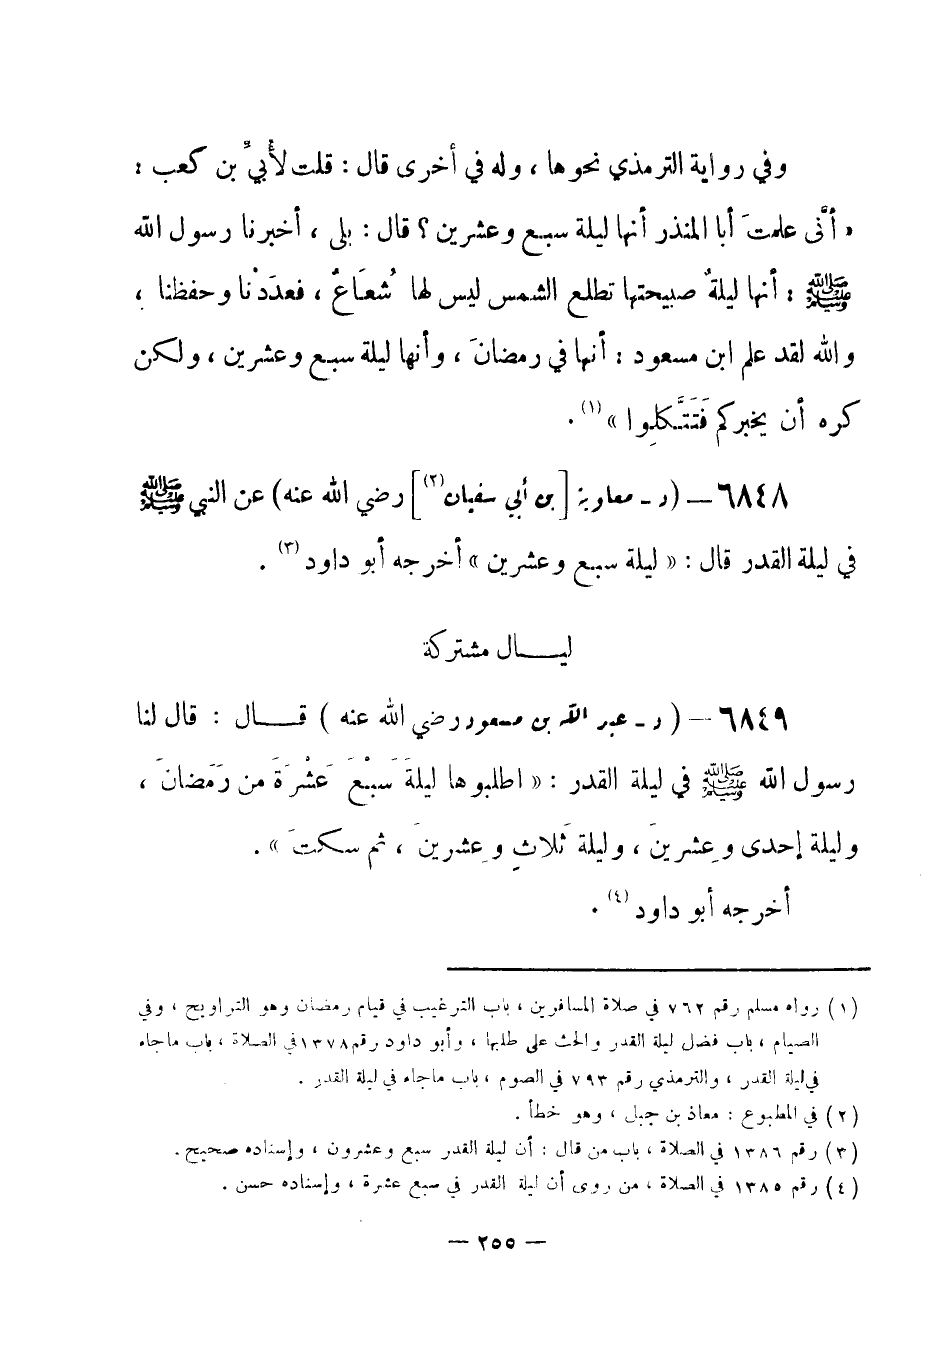 وفي رواية الترمذي نحوها ، وله في أخرى قال : قلت لأُبيِّ بن كعب :
« أنَّى علمتَ أبا المنذر أنها ليلة سبع وعشرين ؟ قال : بلى ، أخبرنا رسول الله
ﷺ : أنها ليلةٌ صبيحتها تطلع الشمس ليس لها شُعَاعٌ ، فعدَدْنا وحفظنا ،
والله لقد علم ابن مسعود : أنها في رمضانَ ، وأنها ليلة سبع وعشرين ، ولكن
كره أن يخبركم فَتَتَّكِلوا »(١) .
٦٨٤٨ – (د ـ معاوية [بن أبي سفيان(٢)] رضي الله عنه) عن النبي ﷺ
في ليلة القدر قال : « ليلة سبع وعشرين » أخرجه أبو داود(٣) .
ليـــال مشتركة
٦٨٤٩ – ( د ـ عبد الله بن مسعود رضي الله عنه ) قـــال : قال لنا
رسول الله ﷺ في ليلة القدر : « اطلبوها ليلةَ سَبْعَ عَشْرَةَ من رَمَضانَ ،
وليلة إحدى وعِشرينَ ، وليلة ثَلاثٍ وعِشرينَ ، ثم سكتَ » .
أخرجه أبو داود(٤) .
(١) رواه مسلم رقم ٧٦٢ في صلاة المسافرين ، باب الترغيب في قيام رمضان وهو التراويح ، وفي
الصيام ، باب فضل ليلة القدر والحث على طلبها ، وأبو داود رقم ١٣٧٨ في الصلاة ، باب ماجاء
في ليلة القدر ، والترمذي رقم ٧٩٣ في الصوم ، باب ماجاء في ليلة القدر .
(٢) في المطبوع : معاذ بن جبل ، وهو خطأ .
(٣) رقم ١٣٨٦ في الصلاة ، باب من قال : أن ليلة القدر سبع وعشرون ، وإسناده صحيح .
(٤) رقم ١٣٨٥ في الصلاة ، من روى أن ليلة القدر في سبع عشرة ، وإسناده حسن .
— ٢٥٥ —